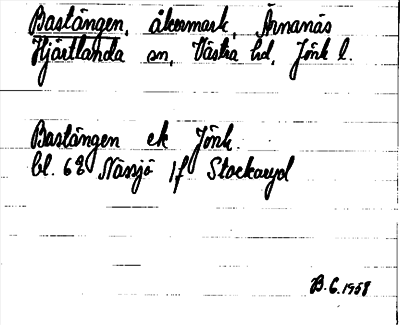 Bastängen, åkermark, Årnanäs
Hjärtlanda sn, Västra hd, Jönk l.
Bastängen ek Jönk.
bl. 6E Nässjö 1f Stockaryd
B.G. 1958